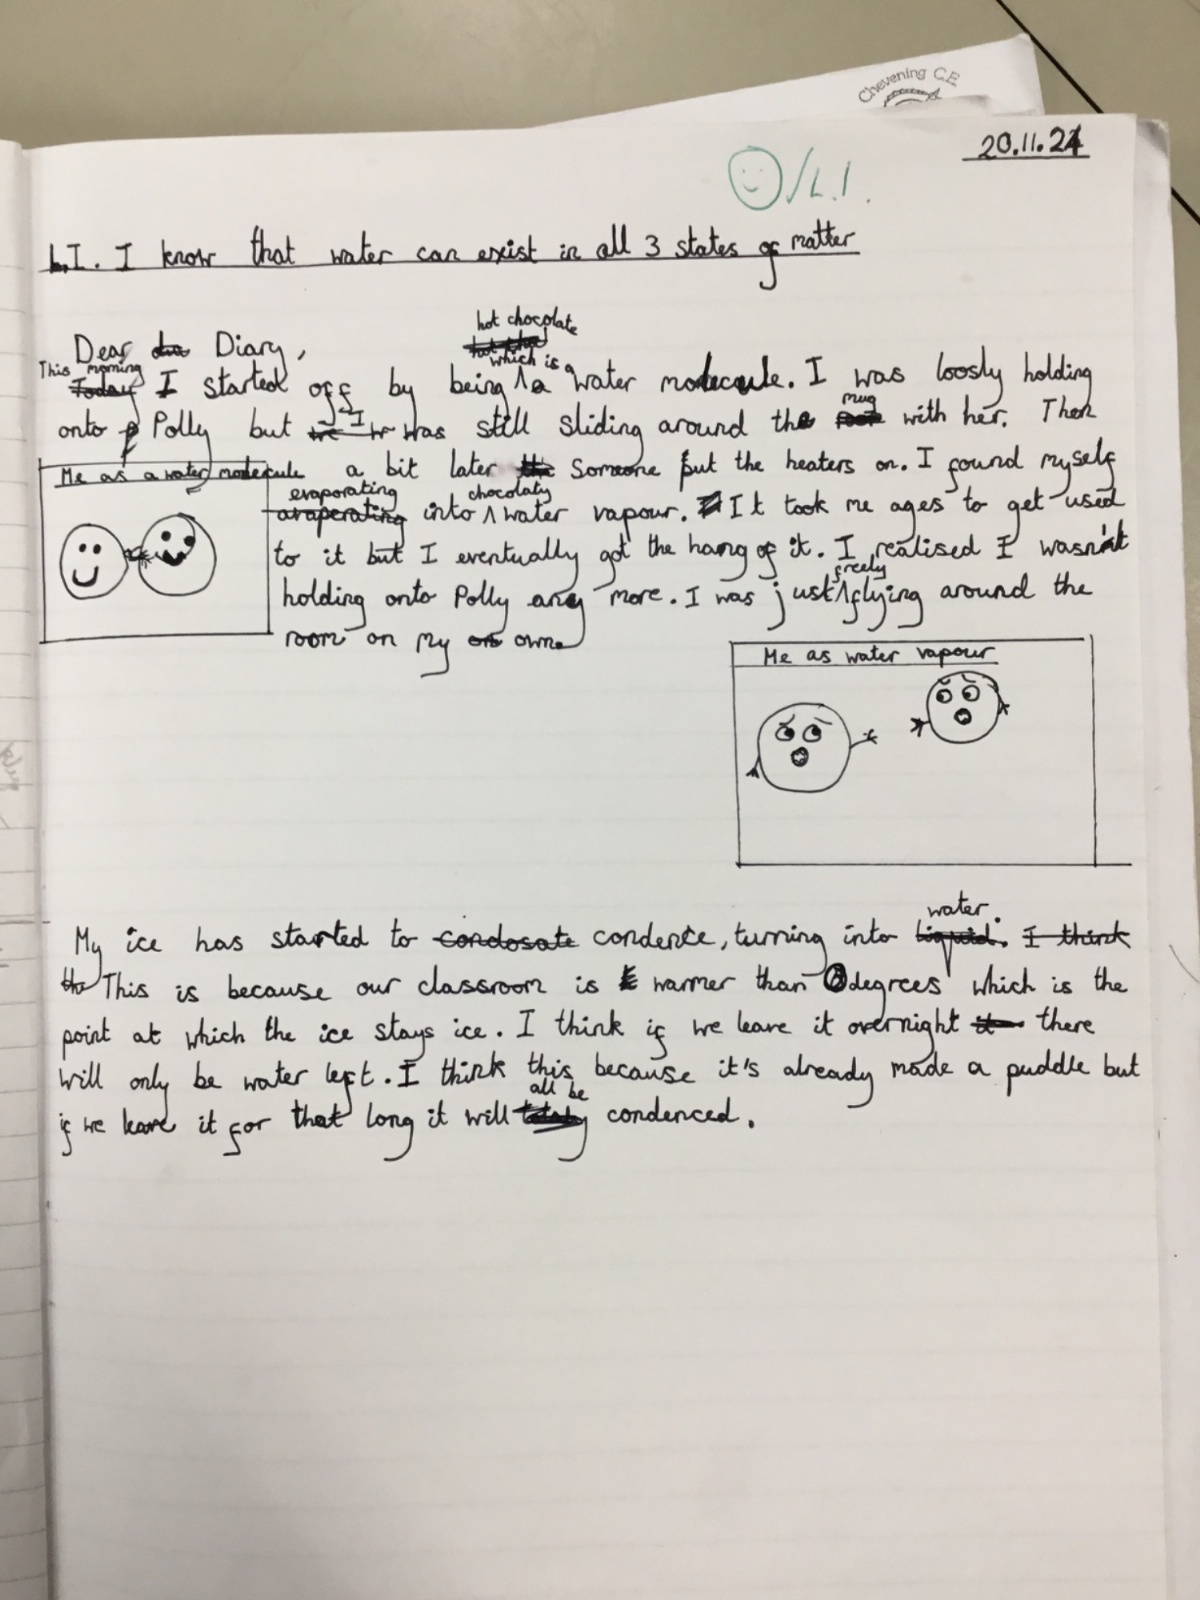 Chevening C.E.
20.11.24
☺/L.I.
L.I. I know that water can exist in all 3 states of matter
Dear Diary,
hot chocolate
which is a
This morning
Today I started off by being ^ a water molecule. I was loosly holding
mug
onto Polly but I was still sliding around the with her. Then
Me as a water molecule
a bit later the Someone put the heaters on. I found myself
evaporating chocolaty
avaperating into ^ water vapour. It took me ages to get used
to it but I eventually got the hang of it. I realised I wasn't
freely
holding onto Polly any more. I was just ^ flying around the
room on my own.
Me as water vapour
water.
My ice has started to condosate condence, turning into liquid. I think
the This is because our classroom is warmer than 0 degrees which is the
point at which the ice stays ice. I think if we leave it overnight it there
will only be water left. I think this because it's already made a puddle but
all be
if we leave it for that long it will condenced.